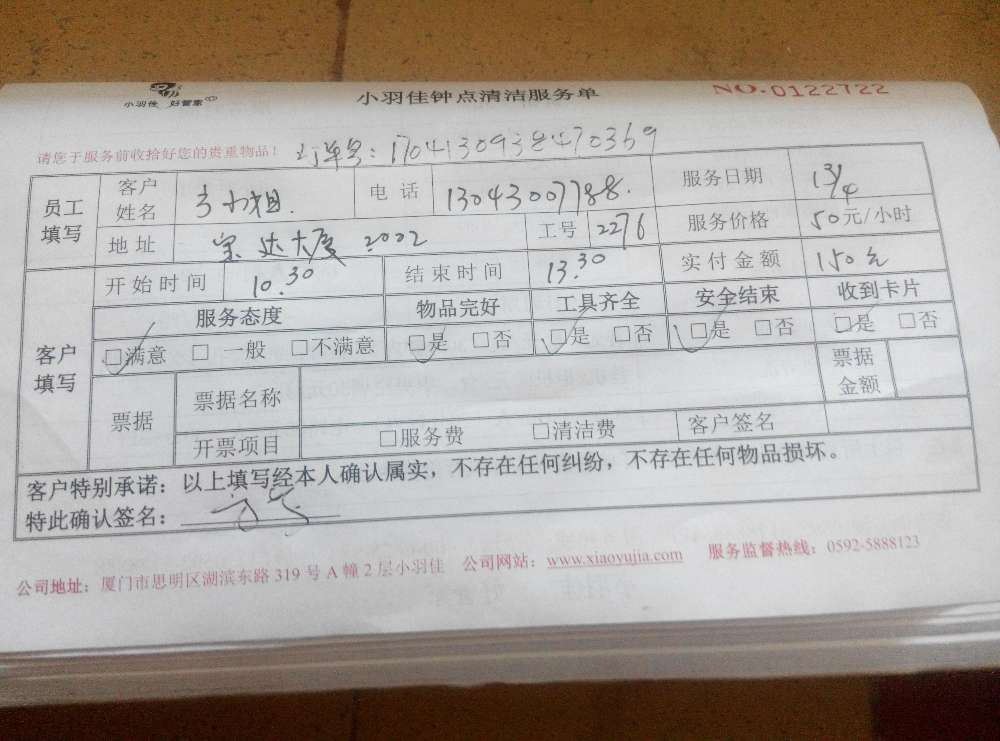 小羽佳 好管家
小羽佳钟点清洁服务单
NO.0122722
请您于服务前收拾好您的贵重物品！ 订单号：1704130938470369
员工填写 客户姓名 小姐. 电话 13043007788. 服务日期 13/4
地址 宗达大厦 2002 工号 2276 服务价格 50元/小时
客户填写 开始时间 10.30 结束时间 13.30 实付金额 150元
服务态度 物品完好 工具齐全 安全结束 收到卡片
□满意 □一般 □不满意 □是 □否 □是 □否 □是 □否 □是 □否
票据 票据名称 票据金额
开票项目 □服务费 □清洁费 客户签名
客户特别承诺：以上填写经本人确认属实，不存在任何纠纷，不存在任何物品损坏。
特此确认签名：
公司地址：厦门市思明区湖滨东路 319 号 A 幢 2 层小羽佳 公司网站：www.xiaoyujia.com 服务监督热线：0592-5888123